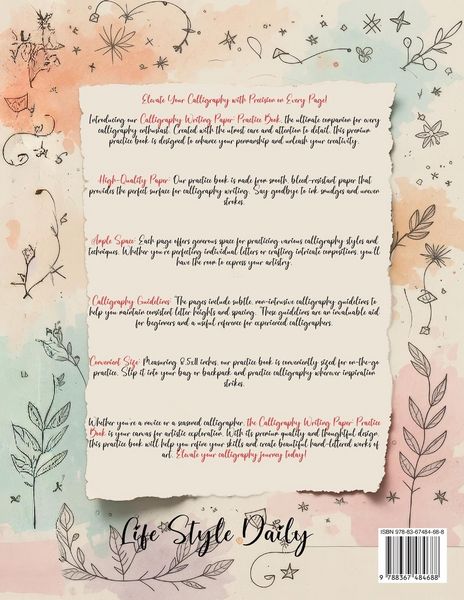 Elevate Your Calligraphy with Precision on Every Page!
Introducing our Calligraphy Writing Paper Practice Book, the ultimate companion for every
calligraphy enthusiast. Created with the utmost care and attention to detail, this premium
practice book is designed to enhance your penmanship and unleash your creativity.
High-Quality Paper: Our practice book is made from smooth, bleed-resistant paper that
provides the perfect surface for calligraphy writing. Say goodbye to ink smudges and uneven
strokes.
Ample Space: Each page offers generous space for practicing various calligraphy styles and
techniques. Whether you're perfecting individual letters or crafting intricate compositions, you'll
have the room to express your artistry.
Calligraphy Guidelines: The pages include subtle, non-intrusive calligraphy guidelines to
help you maintain consistent letter heights and spacing. These guidelines are an invaluable aid
for beginners and a useful reference for experienced calligraphers.
Convenient Size: Measuring 8.5x11 inches, our practice book is conveniently sized for on-the-go
practice. Slip it into your bag or backpack and practice calligraphy wherever inspiration
strikes.
Whether you're a novice or a seasoned calligrapher, the Calligraphy Writing Paper Practice
Book is your canvas for artistic exploration. With its premium quality and thoughtful design,
this practice book will help you refine your skills and create beautiful hand-lettered works of
art. Elevate your calligraphy journey today!
Life Style Daily
ISBN 978-83-67484-68-8
9 788367 484688